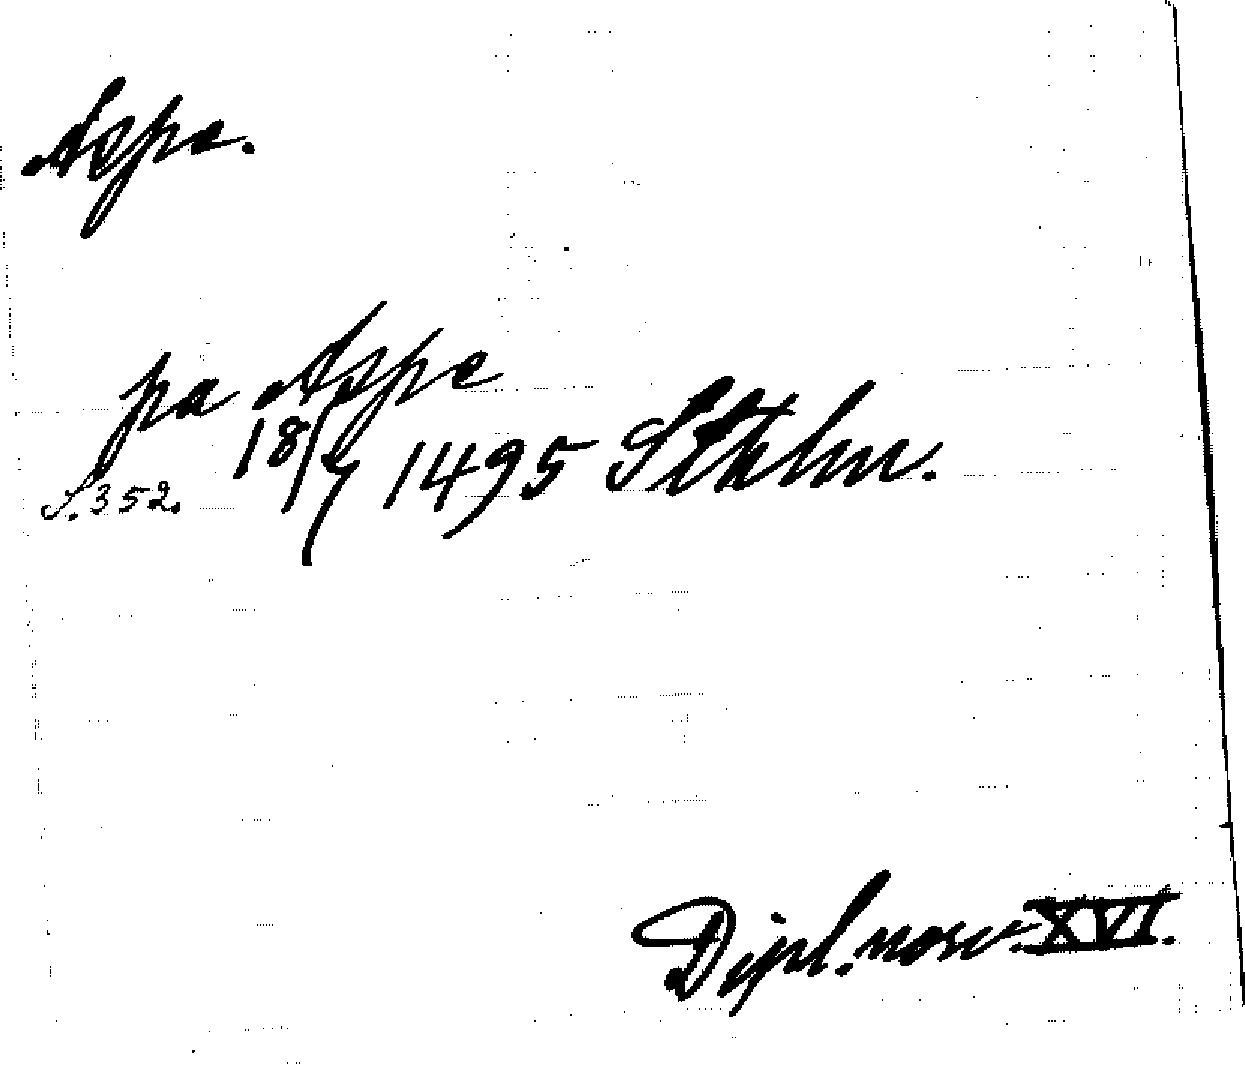 Aspe.
pa Aspe
S. 352. 18/7 1495 Sthlm.
Dipl. norv. XVI.